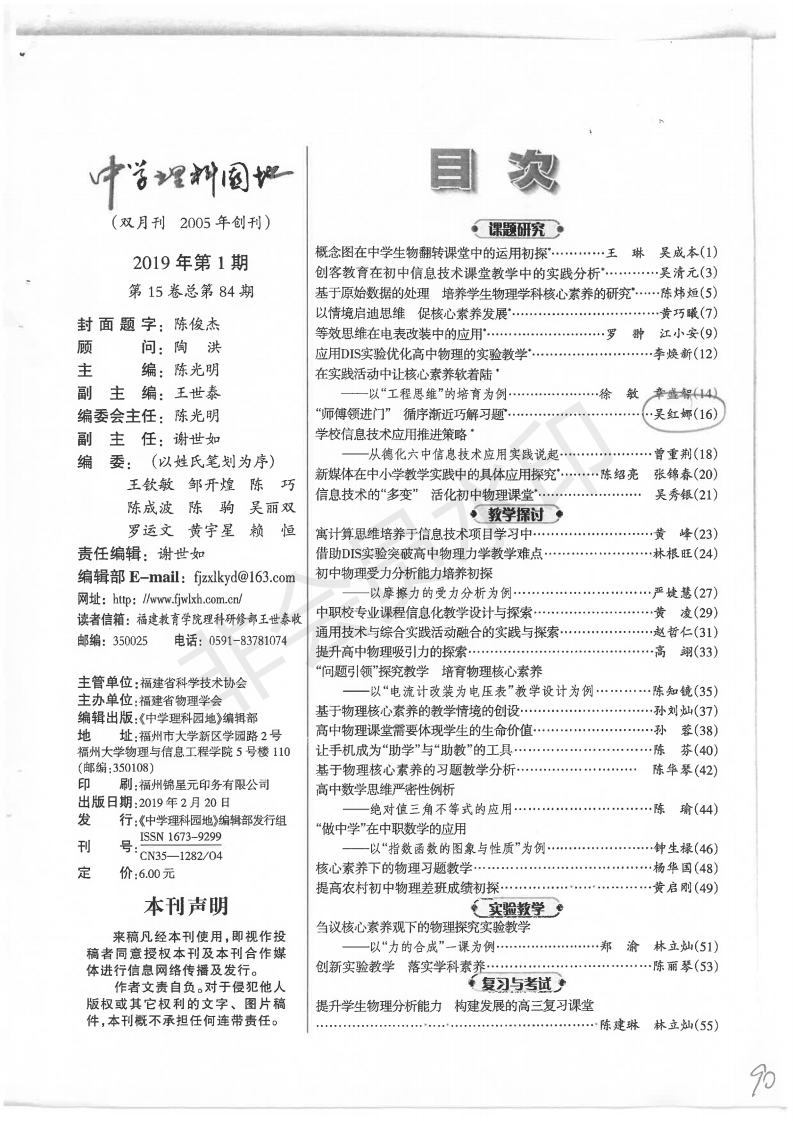 中学理科园地
(双月刊 2005年创刊)
2019年第1期
第15卷总第84期
封面题字：陈俊杰
顾问：陶洪
主编：陈光明
副主编：王世泰
编委会主任：陈光明
副主任：谢世如
编委：(以姓氏笔划为序)
王钦敏 邹开煌 陈巧
陈成波 陈驹 吴丽双
罗运文 黄宇星 赖恒
责任编辑：谢世如
编辑部E-mail：fjzxlkyd@163.com
网址：http：//www.fjwlxh.com.cn/
读者信箱：福建教育学院理科研修部王世泰收
邮编：350025 电话：0591-83781074
主管单位：福建省科学技术协会
主办单位：福建省物理学会
编辑出版：《中学理科园地》编辑部
地址：福州市大学新区学园路2号
福州大学物理与信息工程学院5号楼110
(邮编：350108)
印刷：福州锦星元印务有限公司
出版日期：2019年2月20日
发行：《中学理科园地》编辑部发行组
刊号：ISSN 1673-9299
CN35—1282/O4
定价：6.00元
本刊声明
来稿凡经本刊使用，即视作投
稿者同意授权本刊及本刊合作媒
体进行信息网络传播及发行。
作者文责自负。对于侵犯他人
版权或其它权利的文字、图片稿
件，本刊概不承担任何连带责任。
目次
课题研究
概念图在中学生物翻转课堂中的运用初探*…………王琳 吴成本(1)
创客教育在初中信息技术课堂教学中的实践分析*…………吴清元(3)
基于原始数据的处理 培养学生物理学科核心素养的研究*……陈炜烜(5)
以情境启迪思维 促核心素养发展*…………黄巧曦(7)
等效思维在电表改装中的应用*…………罗翀 江小安(9)
应用DIS实验优化高中物理的实验教学*…………李焕新(12)
在实践活动中让核心素养软着陆*
——以“工程思维”的培育为例…………徐敏 章盛智(14)
“师傅领进门” 循序渐近巧解习题*…………吴红娜(16)
学校信息技术应用推进策略*
——从德化六中信息技术应用实践说起…………曾重荆(18)
新媒体在中小学教学实践中的具体应用探究*…………陈绍亮 张锦春(20)
信息技术的“多变” 活化初中物理课堂*…………吴秀银(21)
教学探讨
寓计算思维培养于信息技术项目学习中…………黄峰(23)
借助DIS实验突破高中物理力学教学难点…………林根旺(24)
初中物理受力分析能力培养初探
——以摩擦力的受力分析为例…………严婕慧(27)
中职校专业课程信息化教学设计与探索…………黄凌(29)
通用技术与综合实践活动融合的实践与探索…………赵哲仁(31)
提升高中物理吸引力的探索…………高翊(33)
“问题引领”探究教学 培育物理核心素养
——以“电流计改装为电压表”教学设计为例…………陈知镜(35)
基于物理核心素养的教学情境的创设…………孙刘灿(37)
高中物理课堂需要体现学生的生命价值…………孙蓉(38)
让手机成为“助学”与“助教”的工具…………陈芬(40)
基于物理核心素养的习题教学分析…………陈华琴(42)
高中数学思维严密性例析
——绝对值三角不等式的应用…………陈瑜(44)
“做中学”在中职数学的应用
——以“指数函数的图象与性质”为例…………钟生禄(46)
核心素养下的物理习题教学…………杨华国(48)
提高农村初中物理差班成绩初探…………黄启刚(49)
实验教学
刍议核心素养观下的物理探究实验教学
——以“力的合成”一课为例…………郑渝 林立灿(51)
创新实验教学 落实学科素养…………陈丽琴(53)
复习与考试
提升学生物理分析能力 构建发展的高三复习课堂
…………陈建琳 林立灿(55)
90
非会员水印